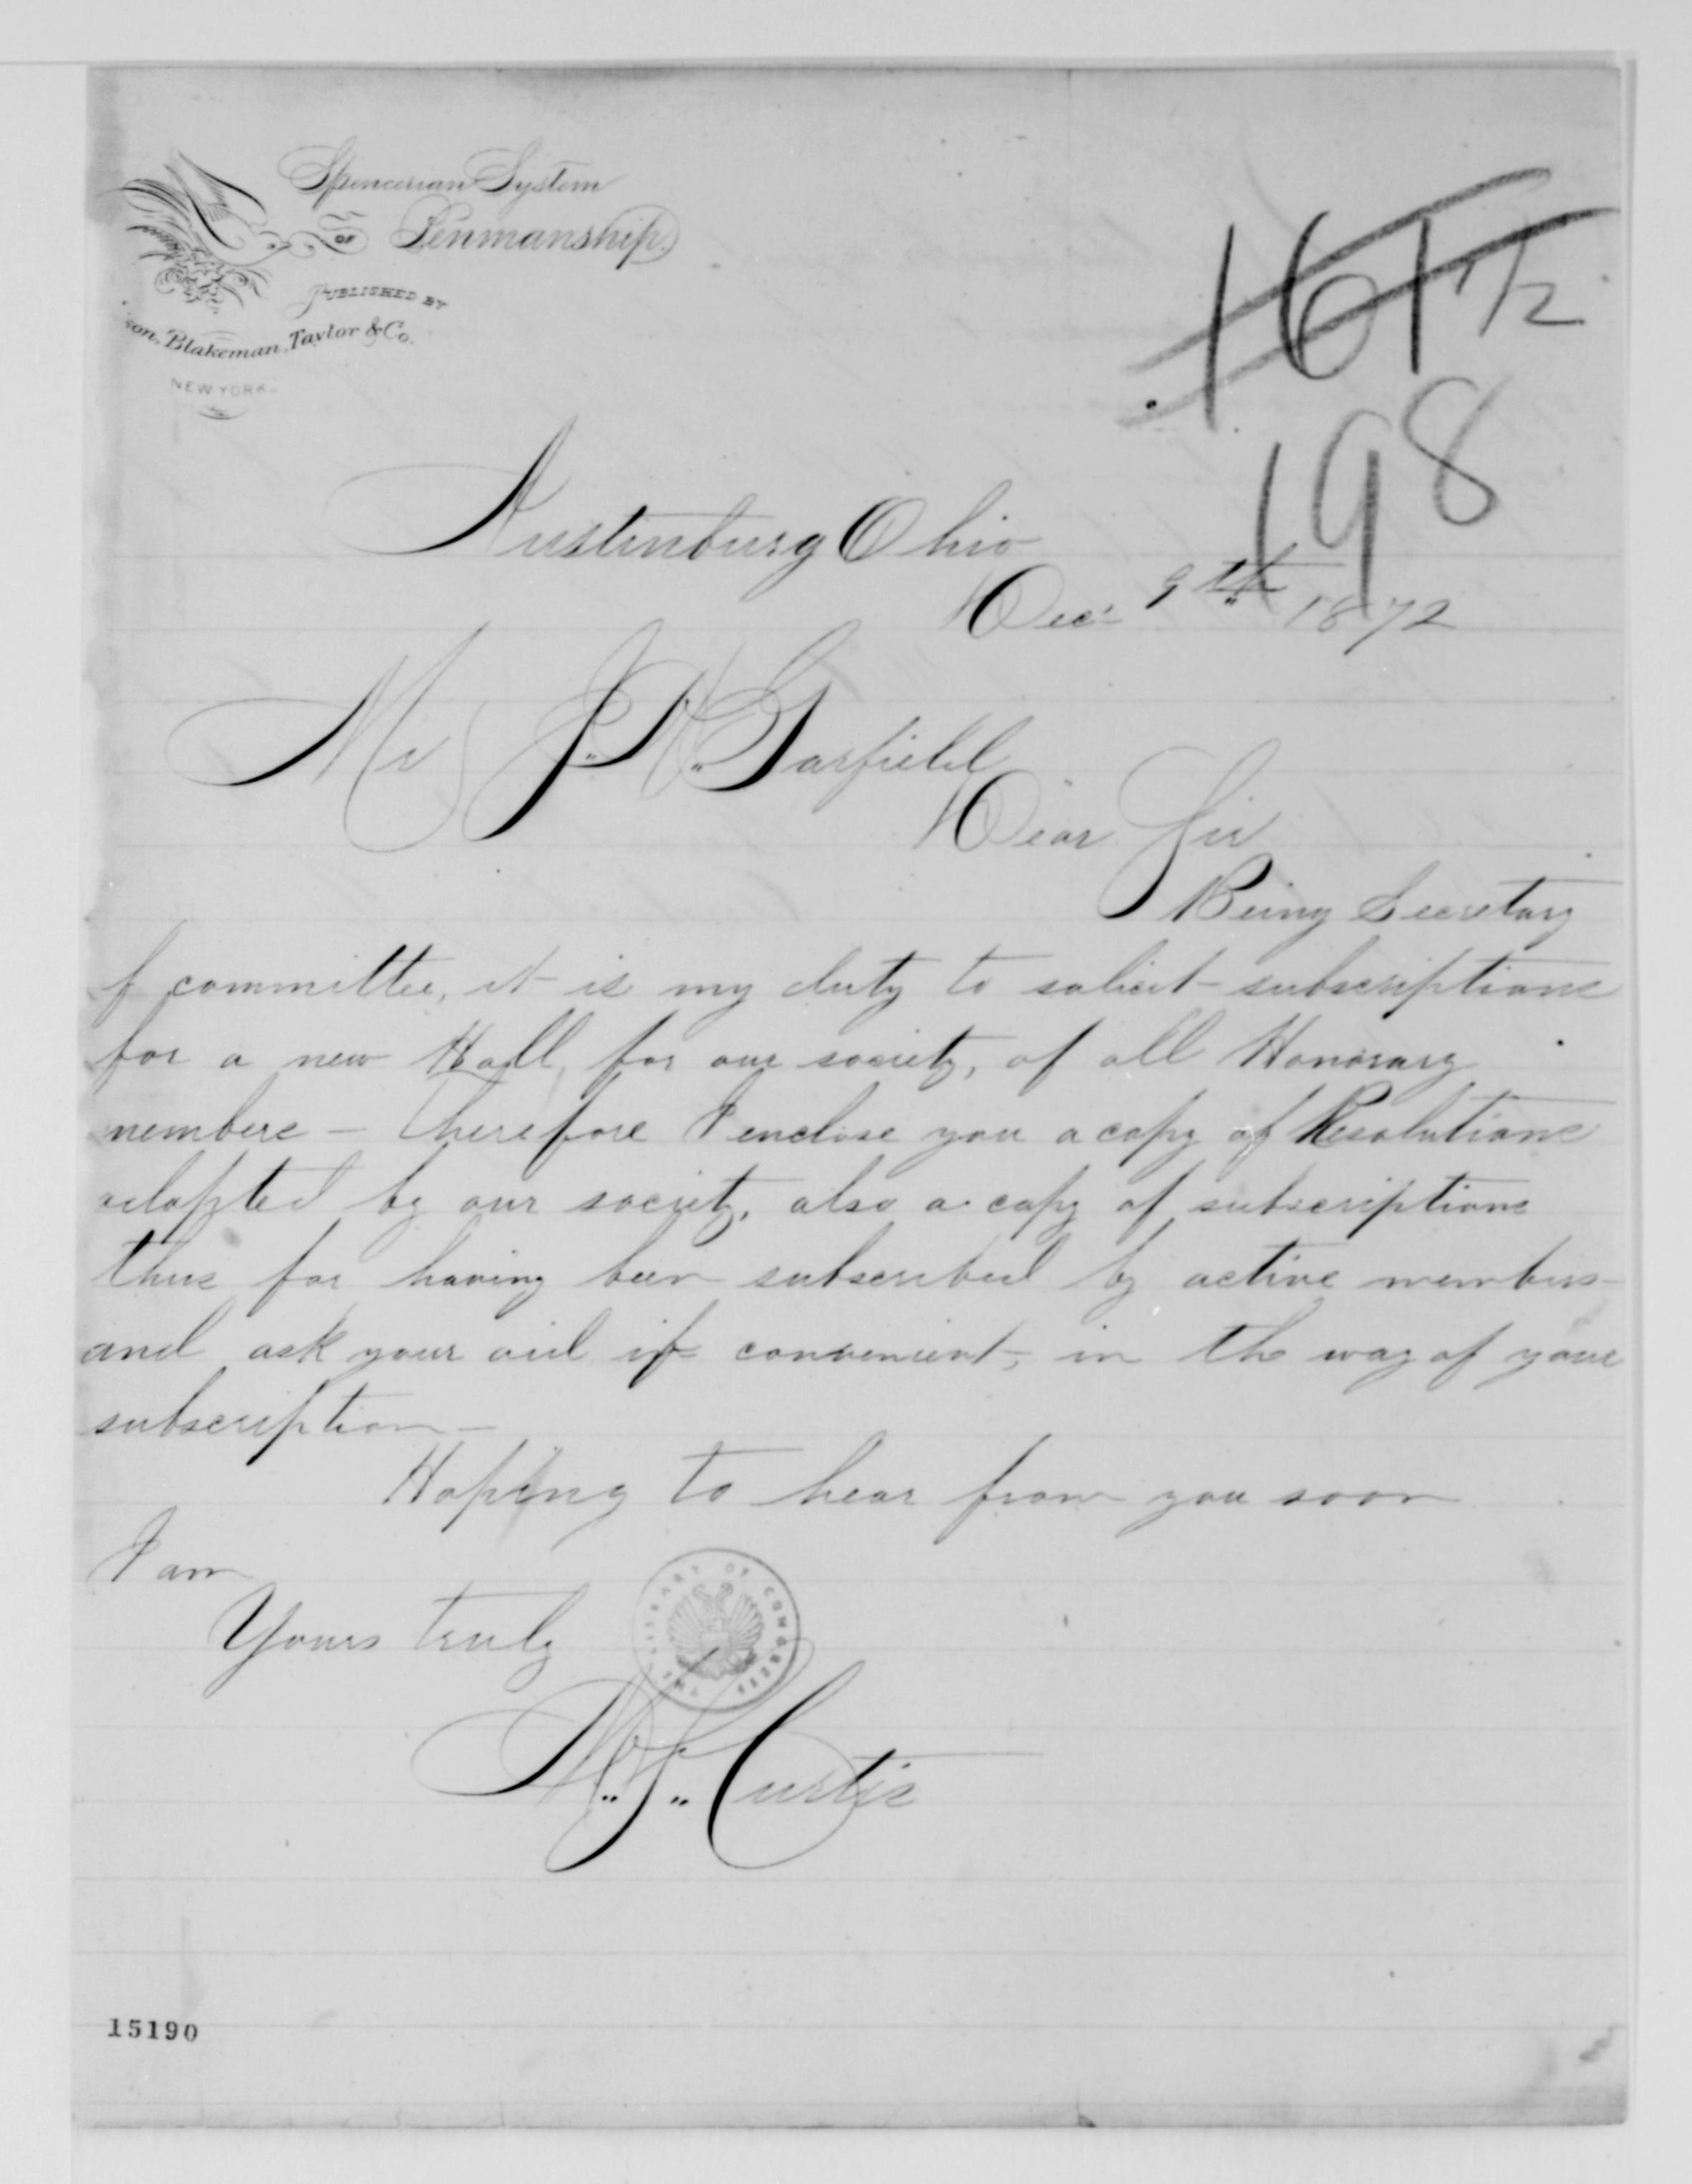 Spencerian System
OF Penmanship.
PUBLISHED BY
son, Blakeman, Taylor & Co.
NEW YORK.
161 1/2
198
Austinburg Ohio
Dec. 9th 1872
Mr J. A. Garfield
Dear Sir
Being Secretary
f committee, it is my duty to solicit subscriptions
for a new Hall, for our society, of all Honorary
members – therefore I enclose you a copy of Resolutions
adopted by our society, also a copy of subscriptions
thus far having been subscribed by active members
and ask your aid if convenient, in the way of your
subscription –
Hoping to hear from you soon
I am
Yours truly
THE LIBRARY OF CONGRESS
Curtis
15190